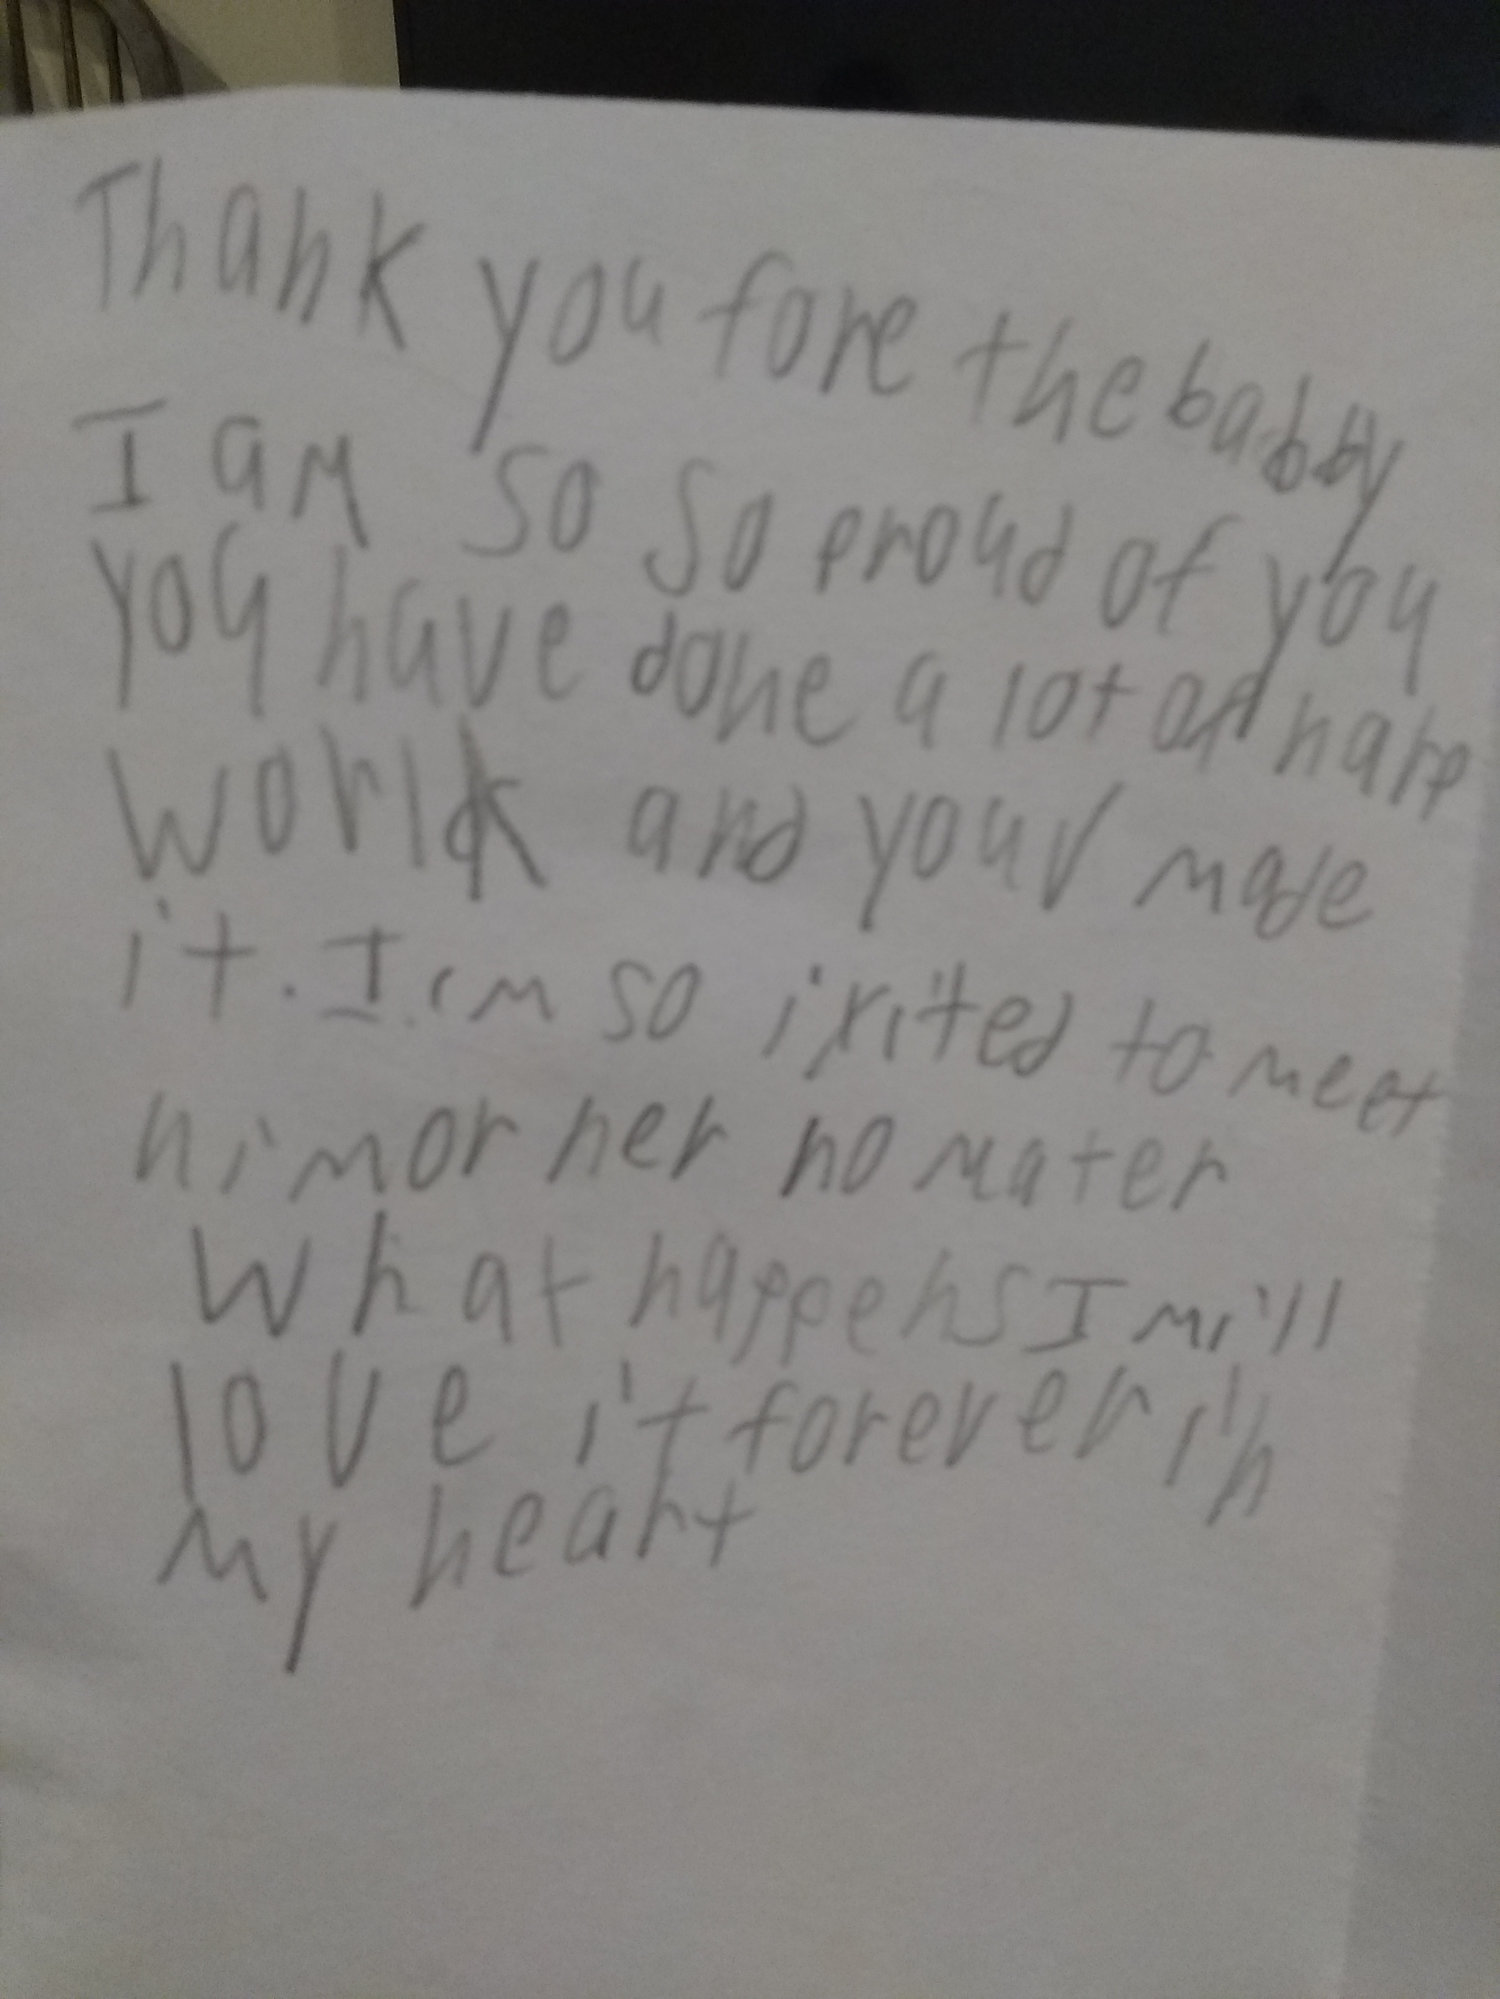 Thank you fore the babby
I am so so proud of you
you have done a lot of hard
work and your made
it. I am so ixited to meet
him or her no mater
what happens I will
love it forever in
my heart